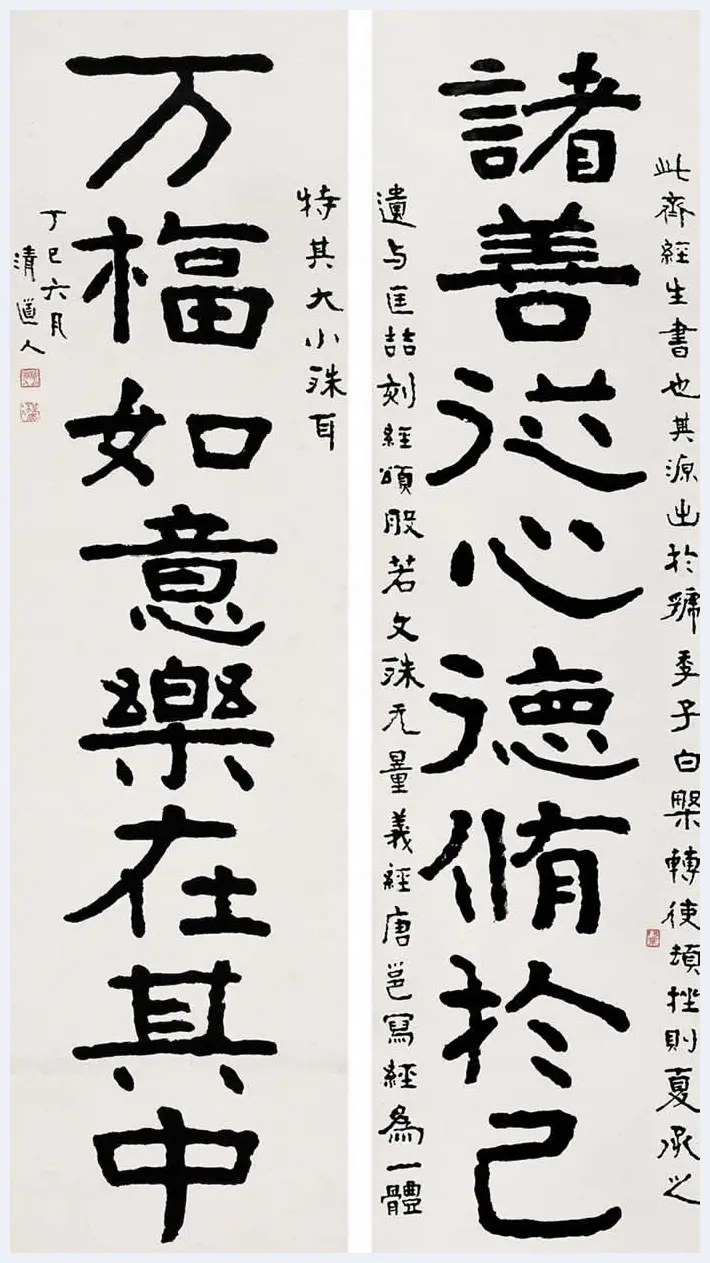 此齊經生書也其源出於虢季子白槃轉使頓挫則夏承之
諸善従心徳脩於己
遺与匡喆刻經頌般若文殊无量義經唐邕寫經為一體
特其大小殊耳
万福如意樂在其中
丁巳六月
清道人